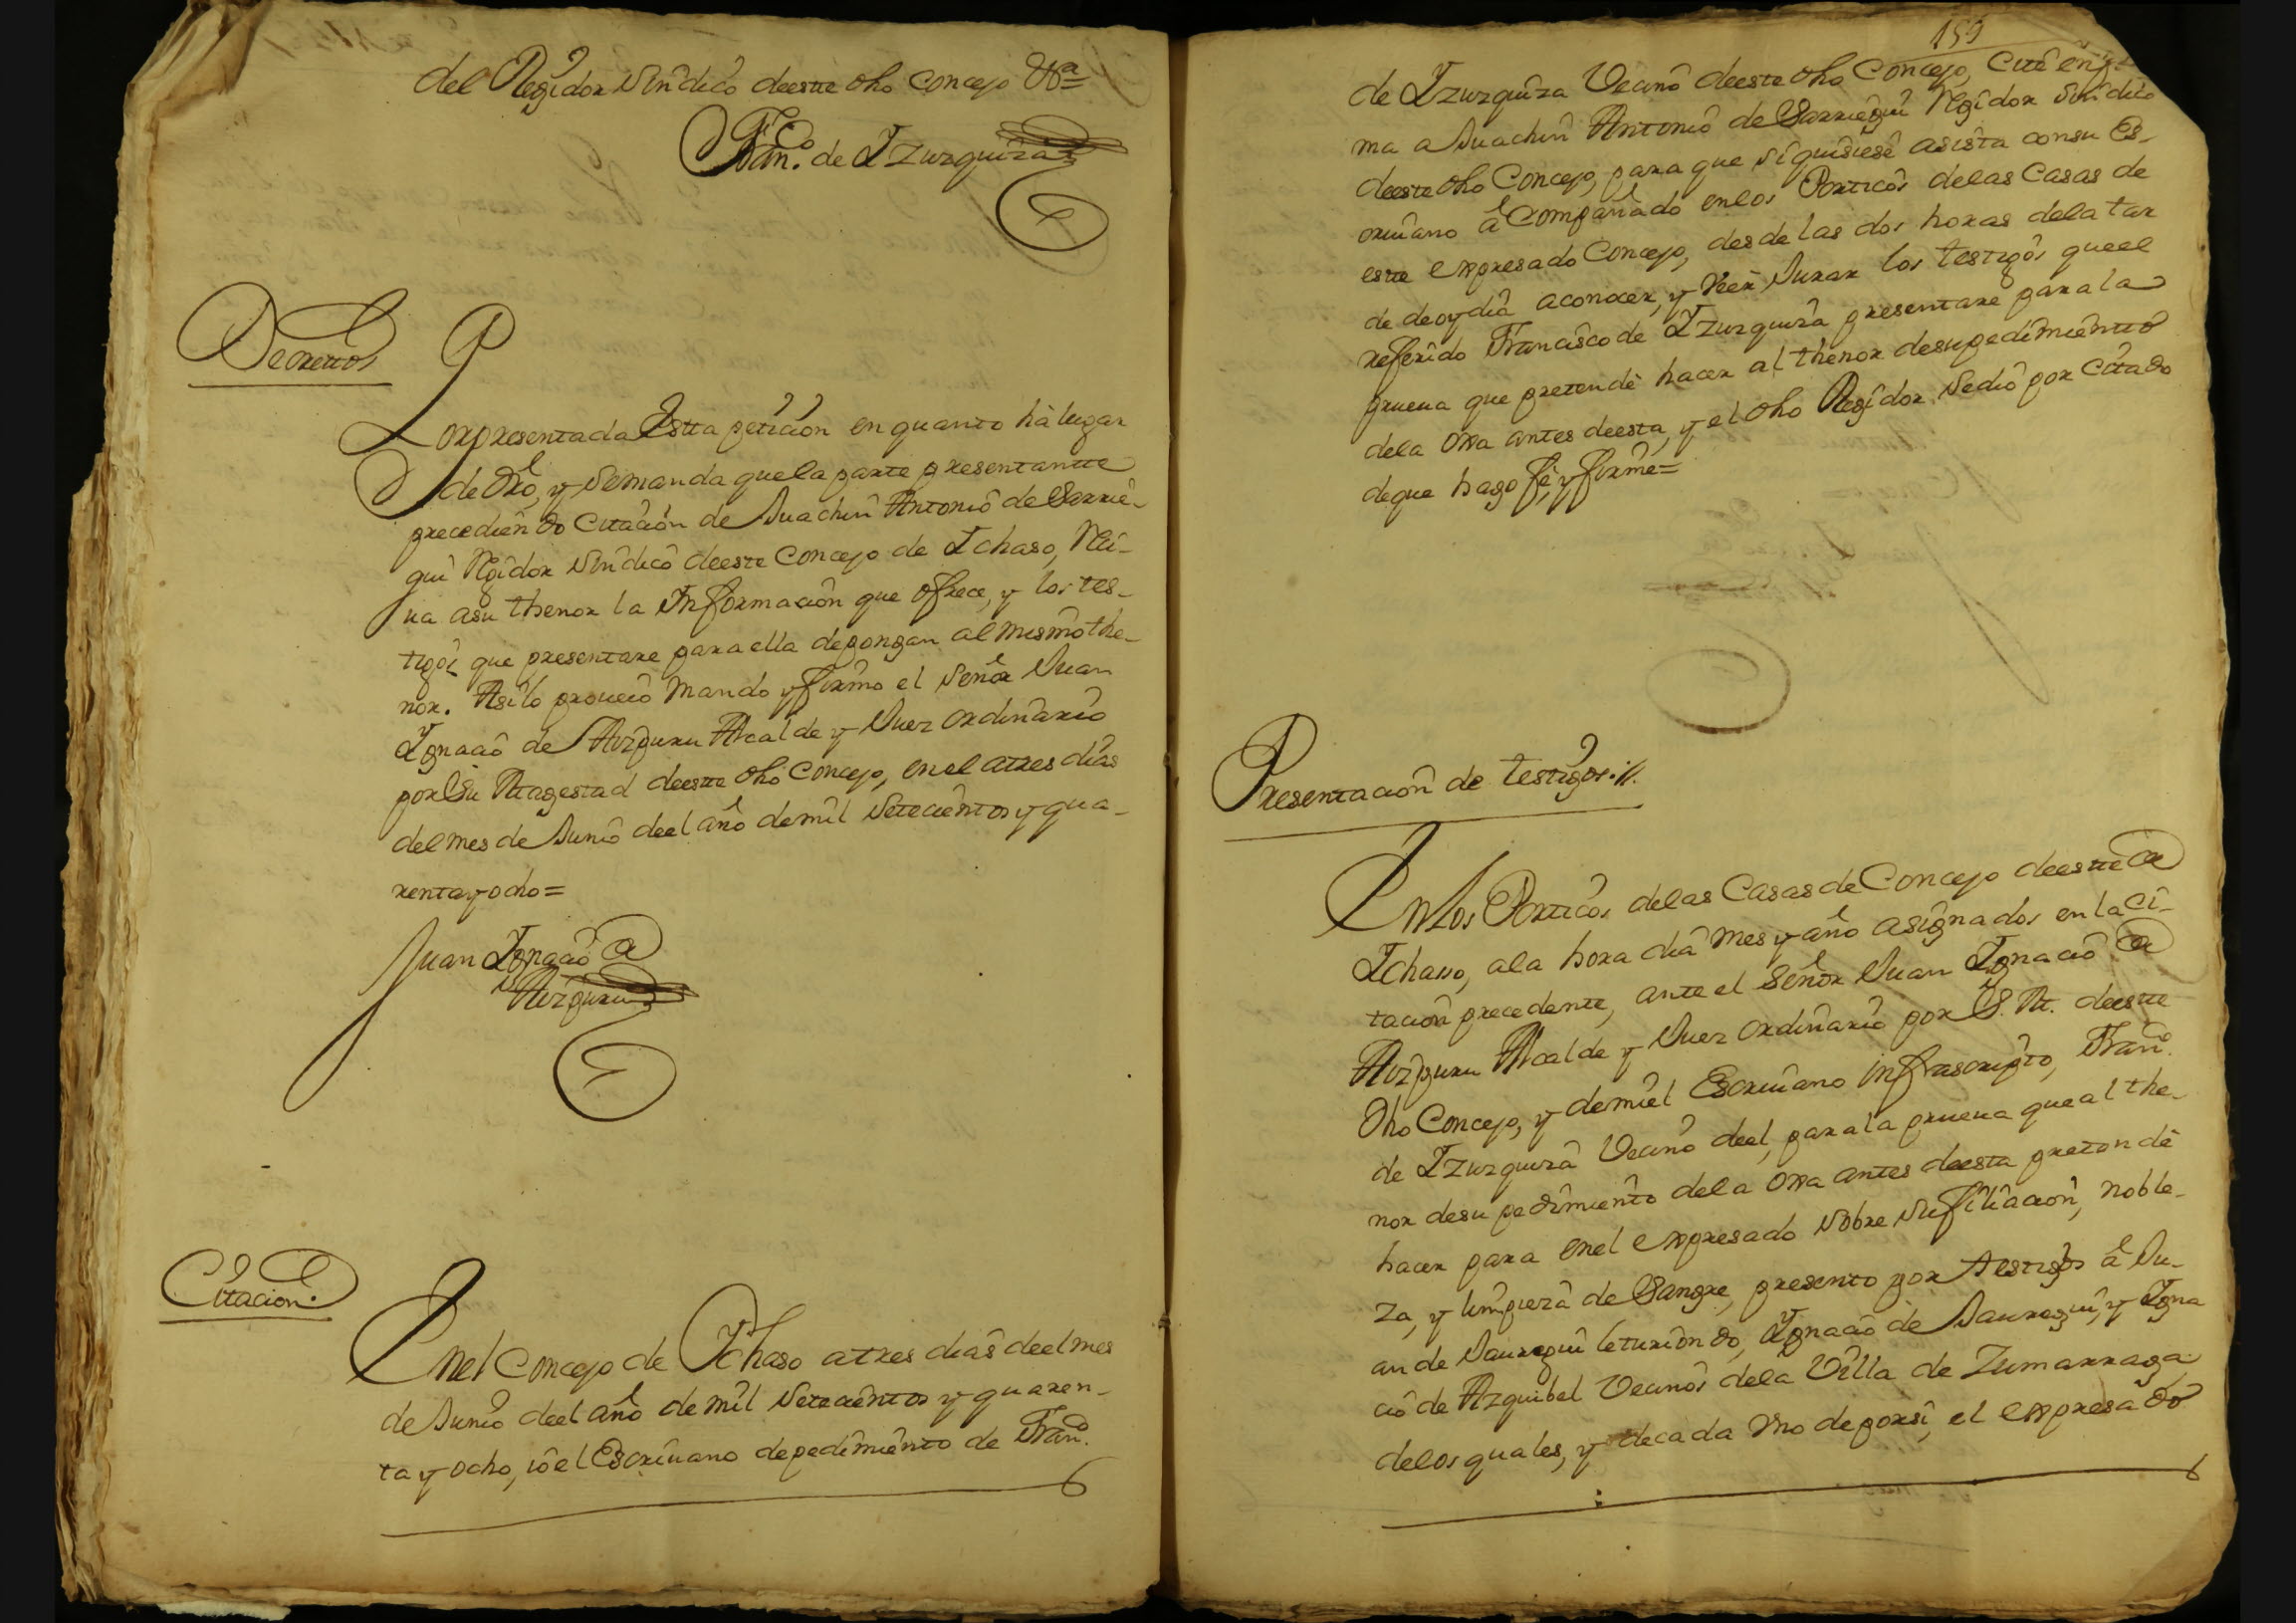 del Regidor Sindico deeste dho Concejo Vtª=
Fran.co de Yzurquiza
Decretto
Porpresentada Estta petiçion en quanto hà lugar
de Dro, y Semanda quela parte presentantte
precediendo Citaçion de Juachin Antonio de Sarrie-
gui Regidor Sindico deeste Concejo de Ichaso, Reci-
ua asu thenor la Informaçion que ofrece, y los tes-
tigos que presentare para ella depongan al mismo the-
nor. Asilo proueio mando y firmo el Señor Juan
Ygnaçio de Aizpuru Alcalde y Juez ordinario
por Su Magestad deestte dho Concejo, en el atres dias
del mes de Junio deel año demil Setecientos y qua-
rentayocho=
Juan Ygnaçio de
Aizpuru
Citacion.
Enel Concejo de Ichaso atres dias deel mes
de Junio deel año de mil Setecientos y quaren-
ta y ocho, iò el Escriuano depedimiento de Fran.co
159
de Yzurquiza Vecino deeste dho Concejo, Citè en
ma a Juachin Antonio de Sarriegui Regidor Sindico
deeste dho Concejo, para que siquisiese asista consu Es-
criuano aCompañado enlos Porticos delas Casas de
este expresado Concejo, desde las dos horas dela tar
de deoydia aconocer, y Veer Jurar los testigos queel
referido Francisco de Yzurquiza presentare para la
prueua que pretende hacer al thenor desupedimientto
dela otra antes deesta, y el dho Regidor Sediò por Citado
deque hago fè, y firmè=
Presentacion de testigos.//.
Enlos Porticos delas Casas de Concejo deestte de
Ichasso, ala hora dia mes y año asignados en la Ci-
tacion precedente, ante el Señor Juan Ygnaçio de
Aizpuru Alcalde y Juez ordinario por S. M. deestte
dho Concejo, y demiel Escriuano infrascripto, Fran.co
de Yzurquiza Vecino deel, para la prueua que al the-
nor desu pedimiento dela otra antes deesta pretende
hacer para enel expresado Sobre Sufiliaçion, noble-
za, y limpieza de Sangre, presento por testigos à Ju-
an de Jauregui leturiondo, Ygnaçio de Jauregui, y Ygna
çio de Azquibel Vecinos dela Villa de Zumarraga
delos quales, y decada vno deporsi, el expresado